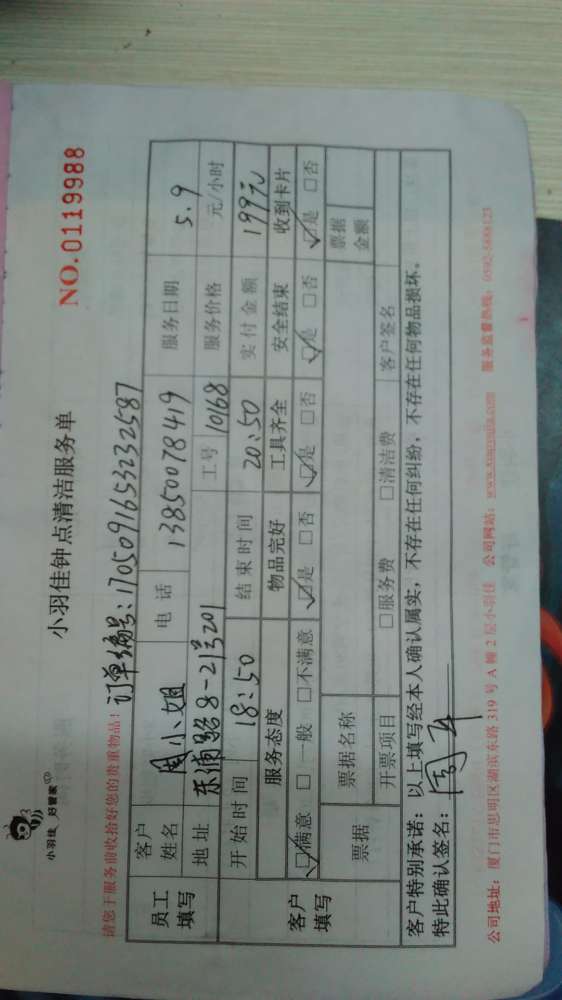 小羽佳 好管家
小羽佳钟点清洁服务单
NO.0119988
请您于服务前收拾好您的贵重物品!
订单编号:1705091653232587
员工填写
客户姓名 周小姐 电话 13850078419 服务日期 5.9
地址 东浦路8-21号201 工号 10168 服务价格 元/小时
开始时间 18:50 结束时间 20:50 实付金额 199元
客户填写
服务态度 物品完好 工具齐全 安全结束 收到卡片
☑满意 □一般 □不满意 ☑是 □否 ☑是 □否 ☑是 □否 ☑是 □否
票据 票据名称 票据金额
开票项目 □服务费 □清洁费 客户签名
客户特别承诺:以上填写经本人确认属实,不存在任何纠纷,不存在任何物品损坏。
特此确认签名:周
公司地址:厦门市思明区湖滨东路319号A幢2层小羽佳 公司网站:www.xmxyj.com 服务监督热线:0592-5888123